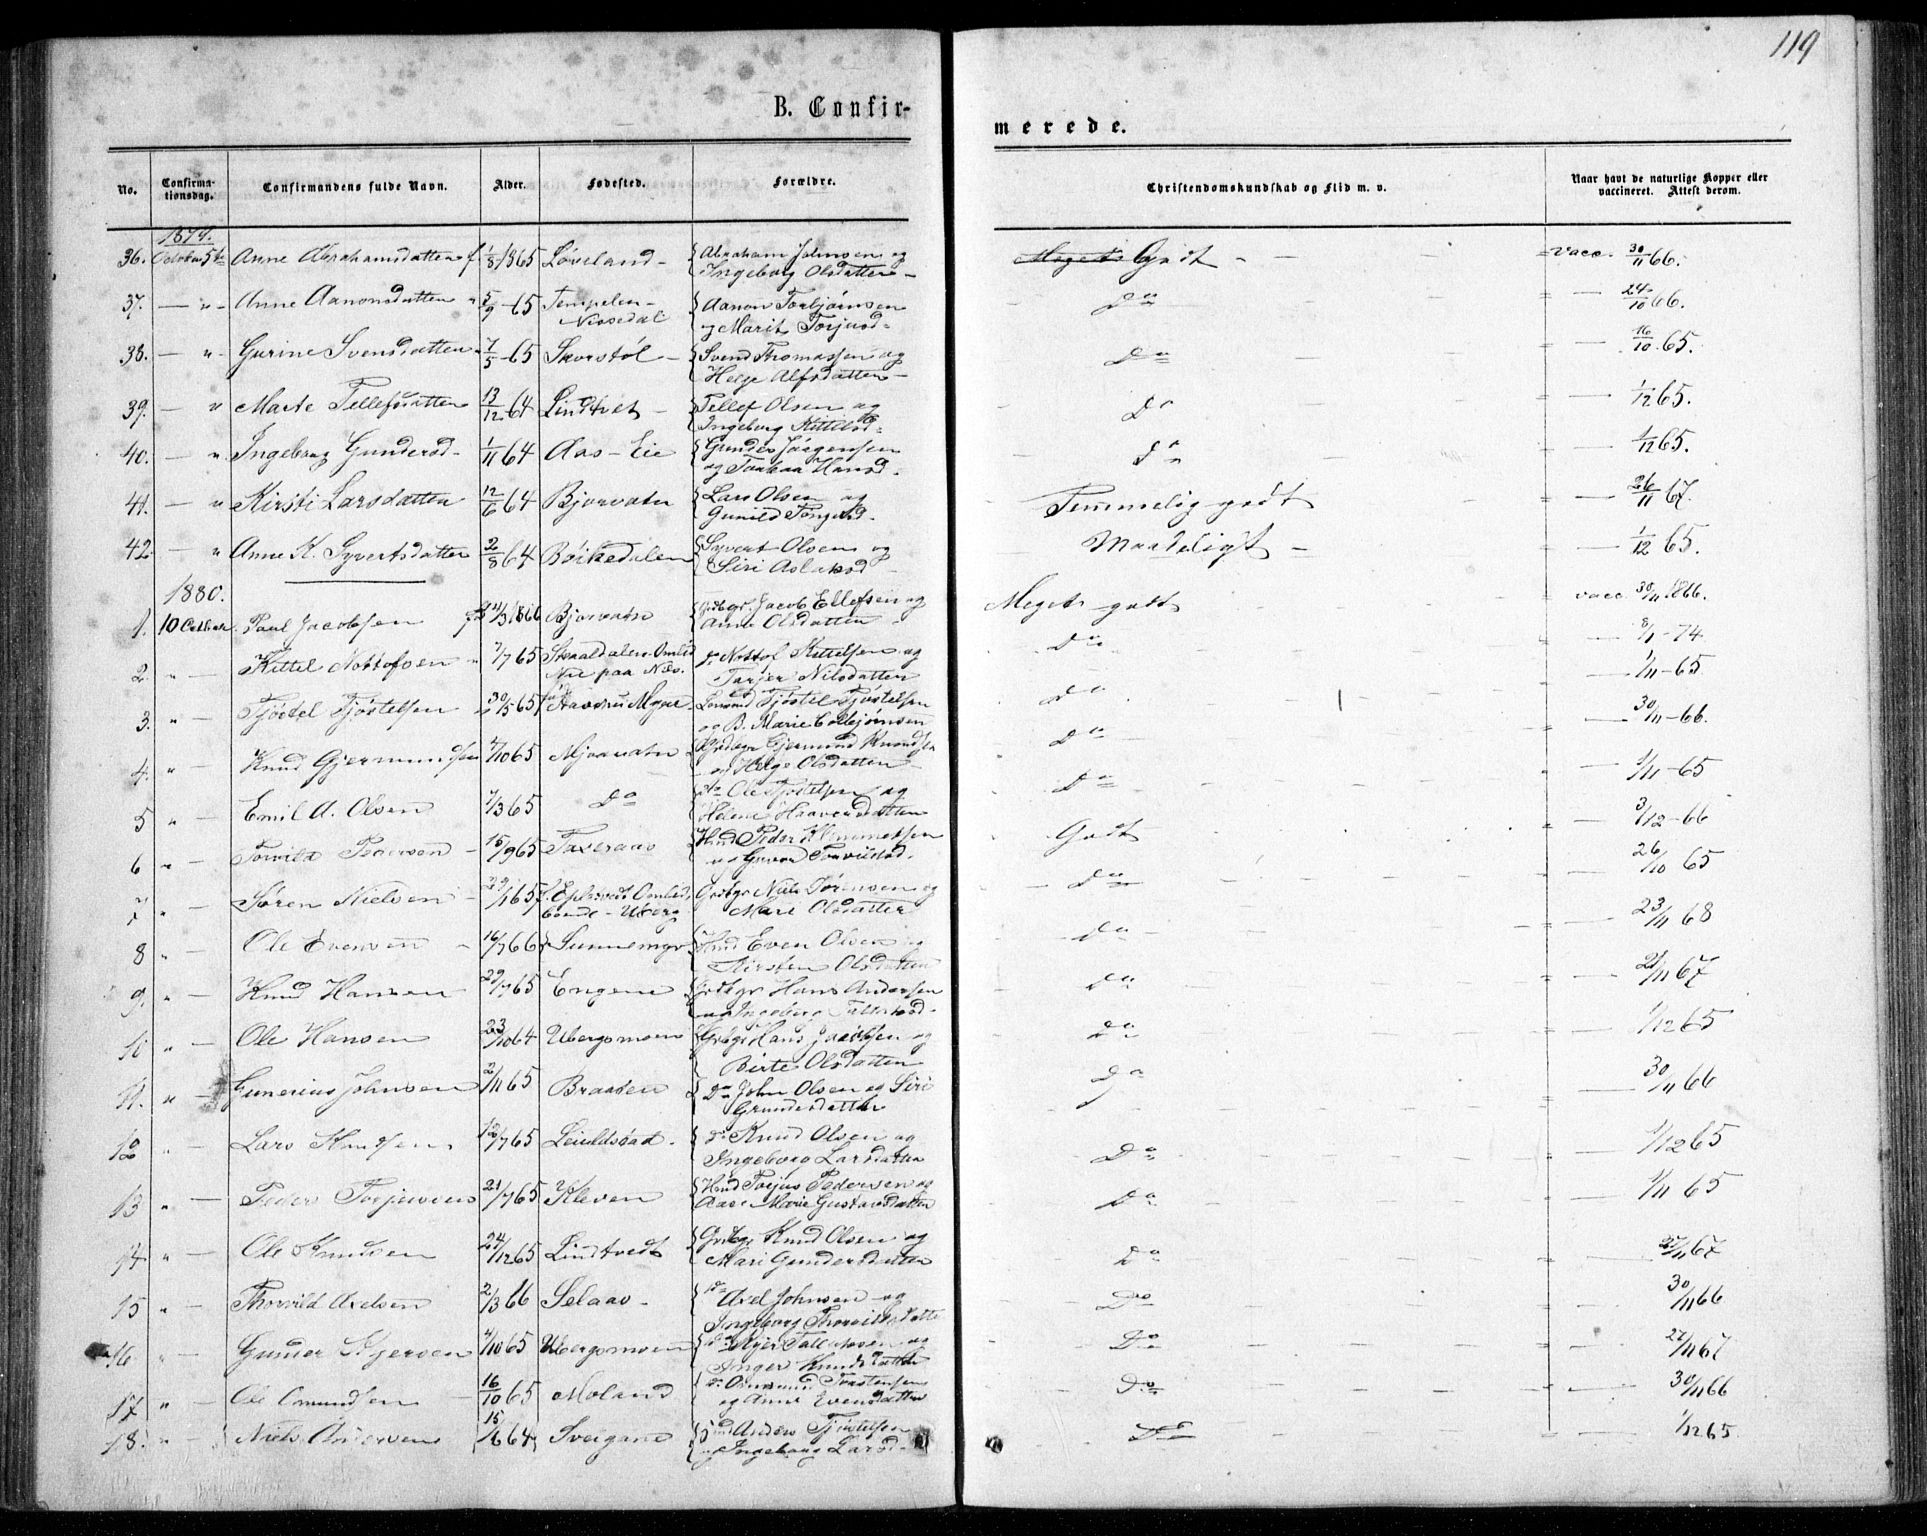 119
B. Confir-
merede.
No. Confirma-tionsdag. Confirmandens fulde Navn. Alder. Fødested. Forældre. Christendomskundskab og Flid m. v. Naar havt de naturlige Kopper eller vaccineret. Attest derom.
1879.
36. October 5te Anne Abrahamsdatter f. 1/8 1865 Løveland - Abraham Johnsen og Ingeborg Olsdatter - Godt - vacc. 30/11 66.
37. - " - Anne Aanonsdatter " 5/9 - 65 Tempelen - Nissedal Aanon Torbjørnsen og Marit Torjusd - Do - 24/10 66.
38. - " Gurine Svensdatter 7/5 - 65 Skorstøl - Svend Thomassen og Helge Alfsdatter - Do - 16/10 65.
39. - " Marte Tellefsdatter 13/12 64 Lindtvet - Tellef Olsen og Ingeborg Kittilsd - Do - 1/12 65.
40. - " Ingeborg Gundersd - 1/11 64 Aas - Eie Gunder Jørgensen og Hansd. Do - 1/12 65.
41. - " Kirsti Larsdatter 12/6 64 Bjorvatn Lars Olsen og Gunild Temmelig godt - 26/11 67.
42 - " Anne K. Syvertsdatter 2/8 64 Bøikedalen Syvert Olsen og Siri Aslaksd - Maadeligt - 1/12 65.
1880.
1. 10 October Paul Jacobsen 1866 Bjorvatn Jacob Ellefsen og Anne Olsdatter Meget godt vacc 30/11 1866.
2 " - Kittel Nottofsen " 7/7 65 Omlid Nie paa Næs. Nottof Kittelsen og Tarjer Nilsdatter Do - 8/1 - 74
3. " - Tjøstel Tjøstelsen 30/5 65 Myre Tjøstel Tjøstelsen og B. Marie Do - 1/11 - 65
4. " - Knud Gjermundsen 4/10 65 Mjaavatn Gjermund Knudsen og Helge Olsdatter Do - 30/11 - 66.
5 " - Emil A. Olsen 7/3 65 Do Ole Tjøstelsen og Helene Haavorsdatter Do - 1/11 - 65
6 " - Pedersen - 15/9 65 Taxeraas Peder Klemmetsen og Godt 3/12 - 66
7 " Søren Nielsen - 1 65 Omlid, Uberg Niels Sørensen og Mari Olsdatter Do - 26/10 65
8 " - Ole Evensen " 16/7 66 Sunnemyr Even Olsen og Kirsten Olsdatter Do - 23/11 68
9. " - Knud Hansen 29/7 65 Engene Hans Andersen og Ingeborg Do - 21/11 67
10 " - Ole Hansen 23/10 64 Ubergsmoen Hans Jacobsen og Birte Olsdatter Do - 1/12 65
11. " - Gunerius Johnsen 2/11 65 Braaten Do John Olsen og Siri Gundersdatter Do - 30/11 66
12 " Lars Knudsen 12/7 65 Do Knud Olsen og Ingeborg Larsdatter Do 1/12 65
13 " - Peder Torjussen 21/7 65 Kleven Torjus Pedersen og Aase Marie Gustavsdatter Do 1/11 65
14 " - Ole Knudsen 24/12 65 Lindtvedt Knud Olsen og Mari Gundersdatter Do 67
15 " - Thorvild Axelsen 2/3 66 Selaas - Do Axel Johnsen og Ingeborg Do 30/11 66
16 " - Gunder 4/10 65 Ubergsmoen og Inger Knudsdatter Do - 27/11 67
17 " - Ole Omundsen - 16/10 65 Moland Do Torstensen og Anne Evensdatter Do - 30/11 66
18. " - Niels Andersen 15/6 64 Sveigane Anders Tjøstelsen og Ingeborg Larsd - Do 1/12 65